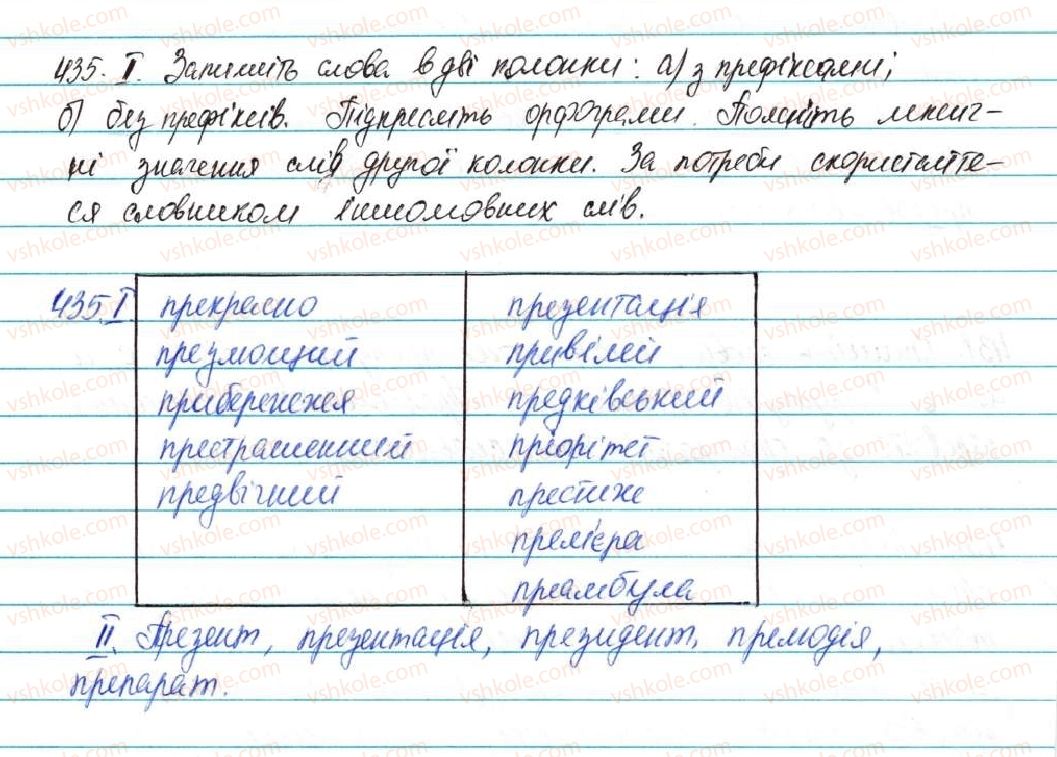 435. I. Запишіть слова в дві колонки: а) з префіксами;
б) без префіксів. Підкресліть орфограми. Поясніть лексич-
ні значення слів другої колонки. За потреби скористайте-
ся словником іншомовних слів.
435. I. прекрасно презентація
презмощий привілей
прибережжя предківський
престрашенний пріорітет
предвічний престиж
прем'єра
преамбула
II. Презент, презентація, президент, прелюдія,
препарат.